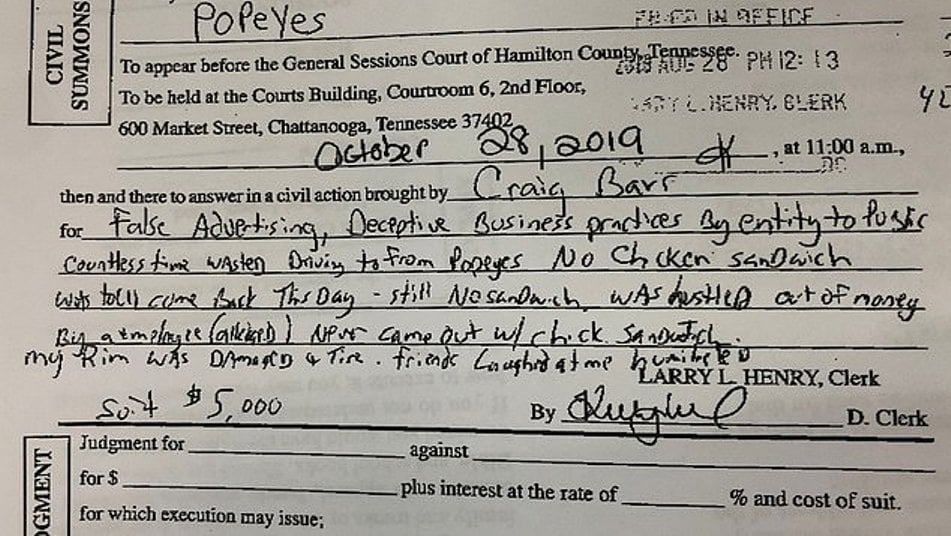 CIVIL SUMMONS
POPEYES
FILED IN OFFICE
To appear before the General Sessions Court of Hamilton County, Tennessee.
2019 AUG 28 PM 12: 13
To be held at the Courts Building, Courtroom 6, 2nd Floor,
LARRY L. HENRY, CLERK
600 Market Street, Chattanooga, Tennessee 37402
October 28, 2019, at 11:00 a.m.,
then and there to answer in a civil action brought by Craig Barr
for False Advertising, Deceptive Business practices By entity to Public
Countless time wasted Driving to from Popeyes No Chcken sandwich
was told come Back This Day - still No sandwich, was hustled out of money
By a employee (alleged) Never came out w/ chick. sandwich.
my Rim was Damaged & Tire. friends Laughed at me
LARRY L. HENRY, Clerk
Suit $5,000
By D. Clerk
Judgment for against
for $ plus interest at the rate of % and cost of suit.
for which execution may issue;